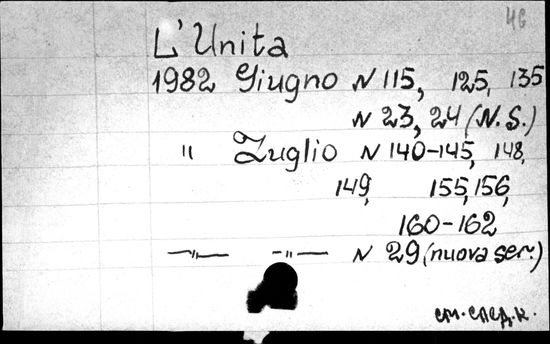 46
L'Unita
1982 Giugno N 115, 125, 135
N 23, 24 (N.S.)
" Zuglio N 140-145, 148,
149, 155, 156,
160-162
—"— —"— N 29 (nuova ser.)
см. след. к.